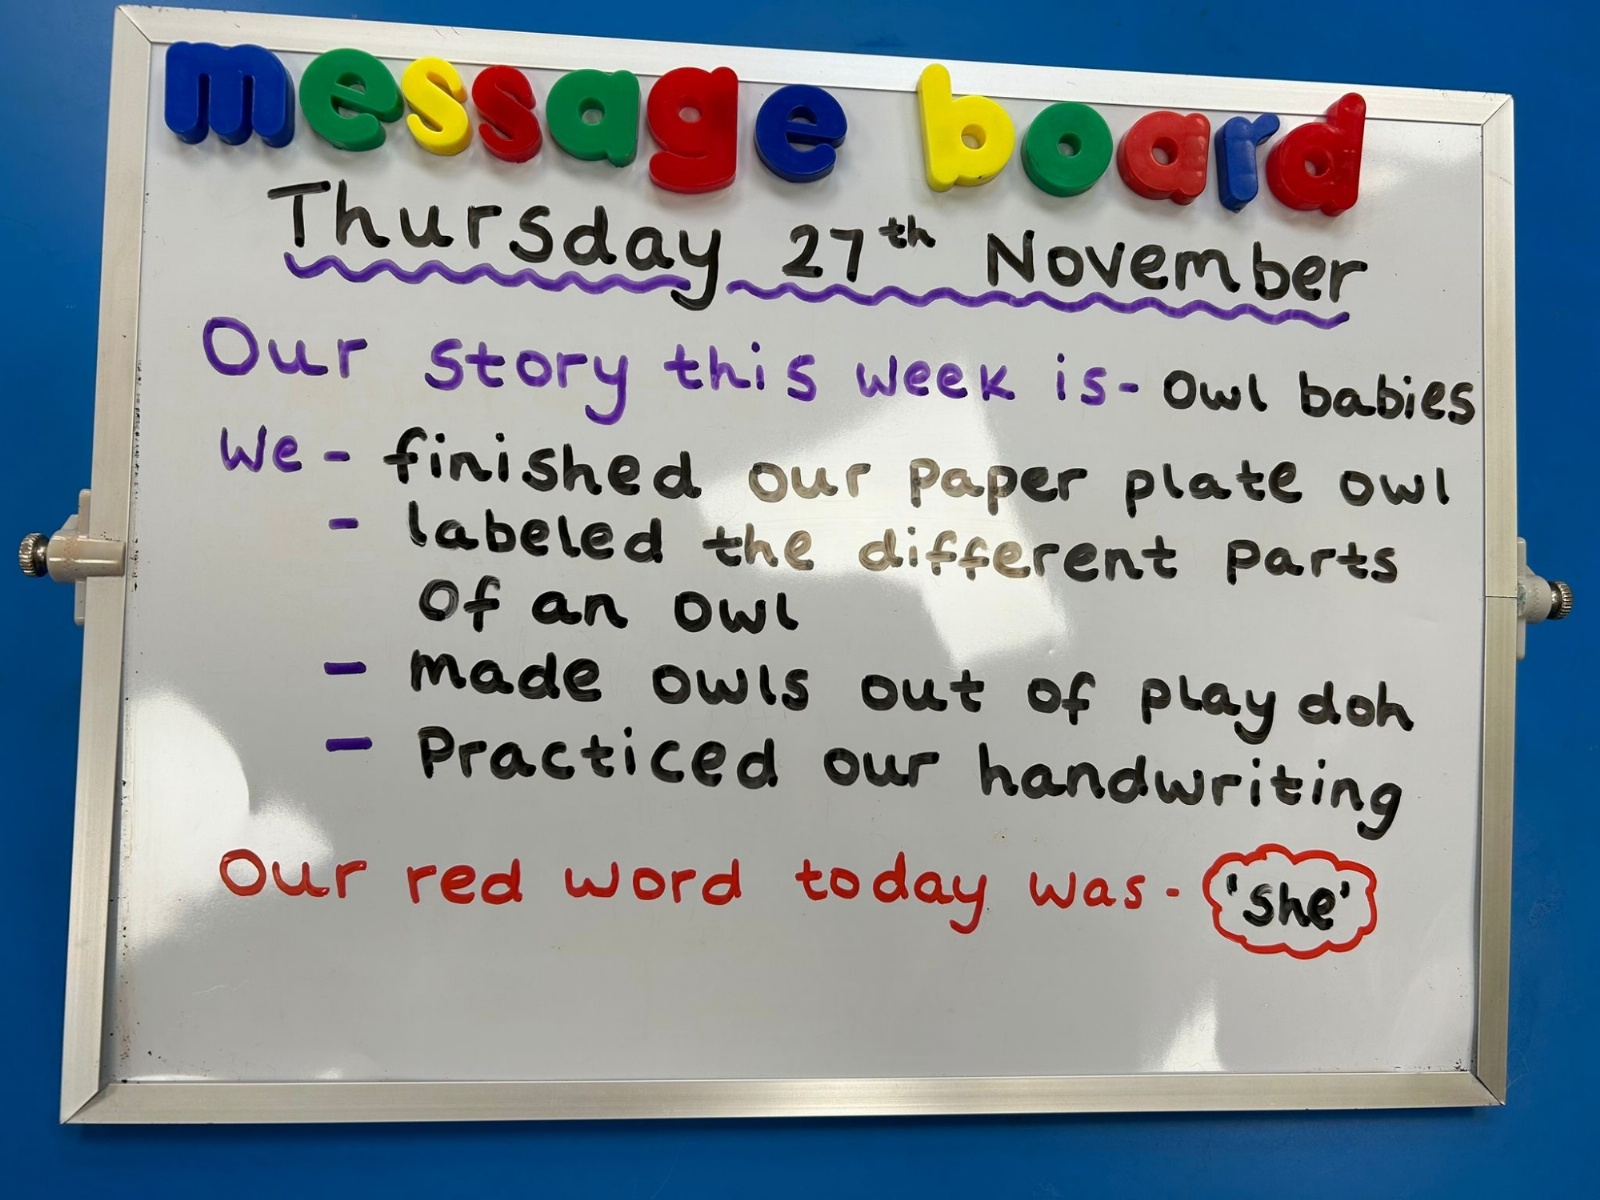 message board
Thursday 27th November
Our story this week is- Owl babies
We - finished our paper plate owl
- labeled the different parts
of an owl
- made owls out of play doh
- Practiced our handwriting
Our red word today was- 'she'